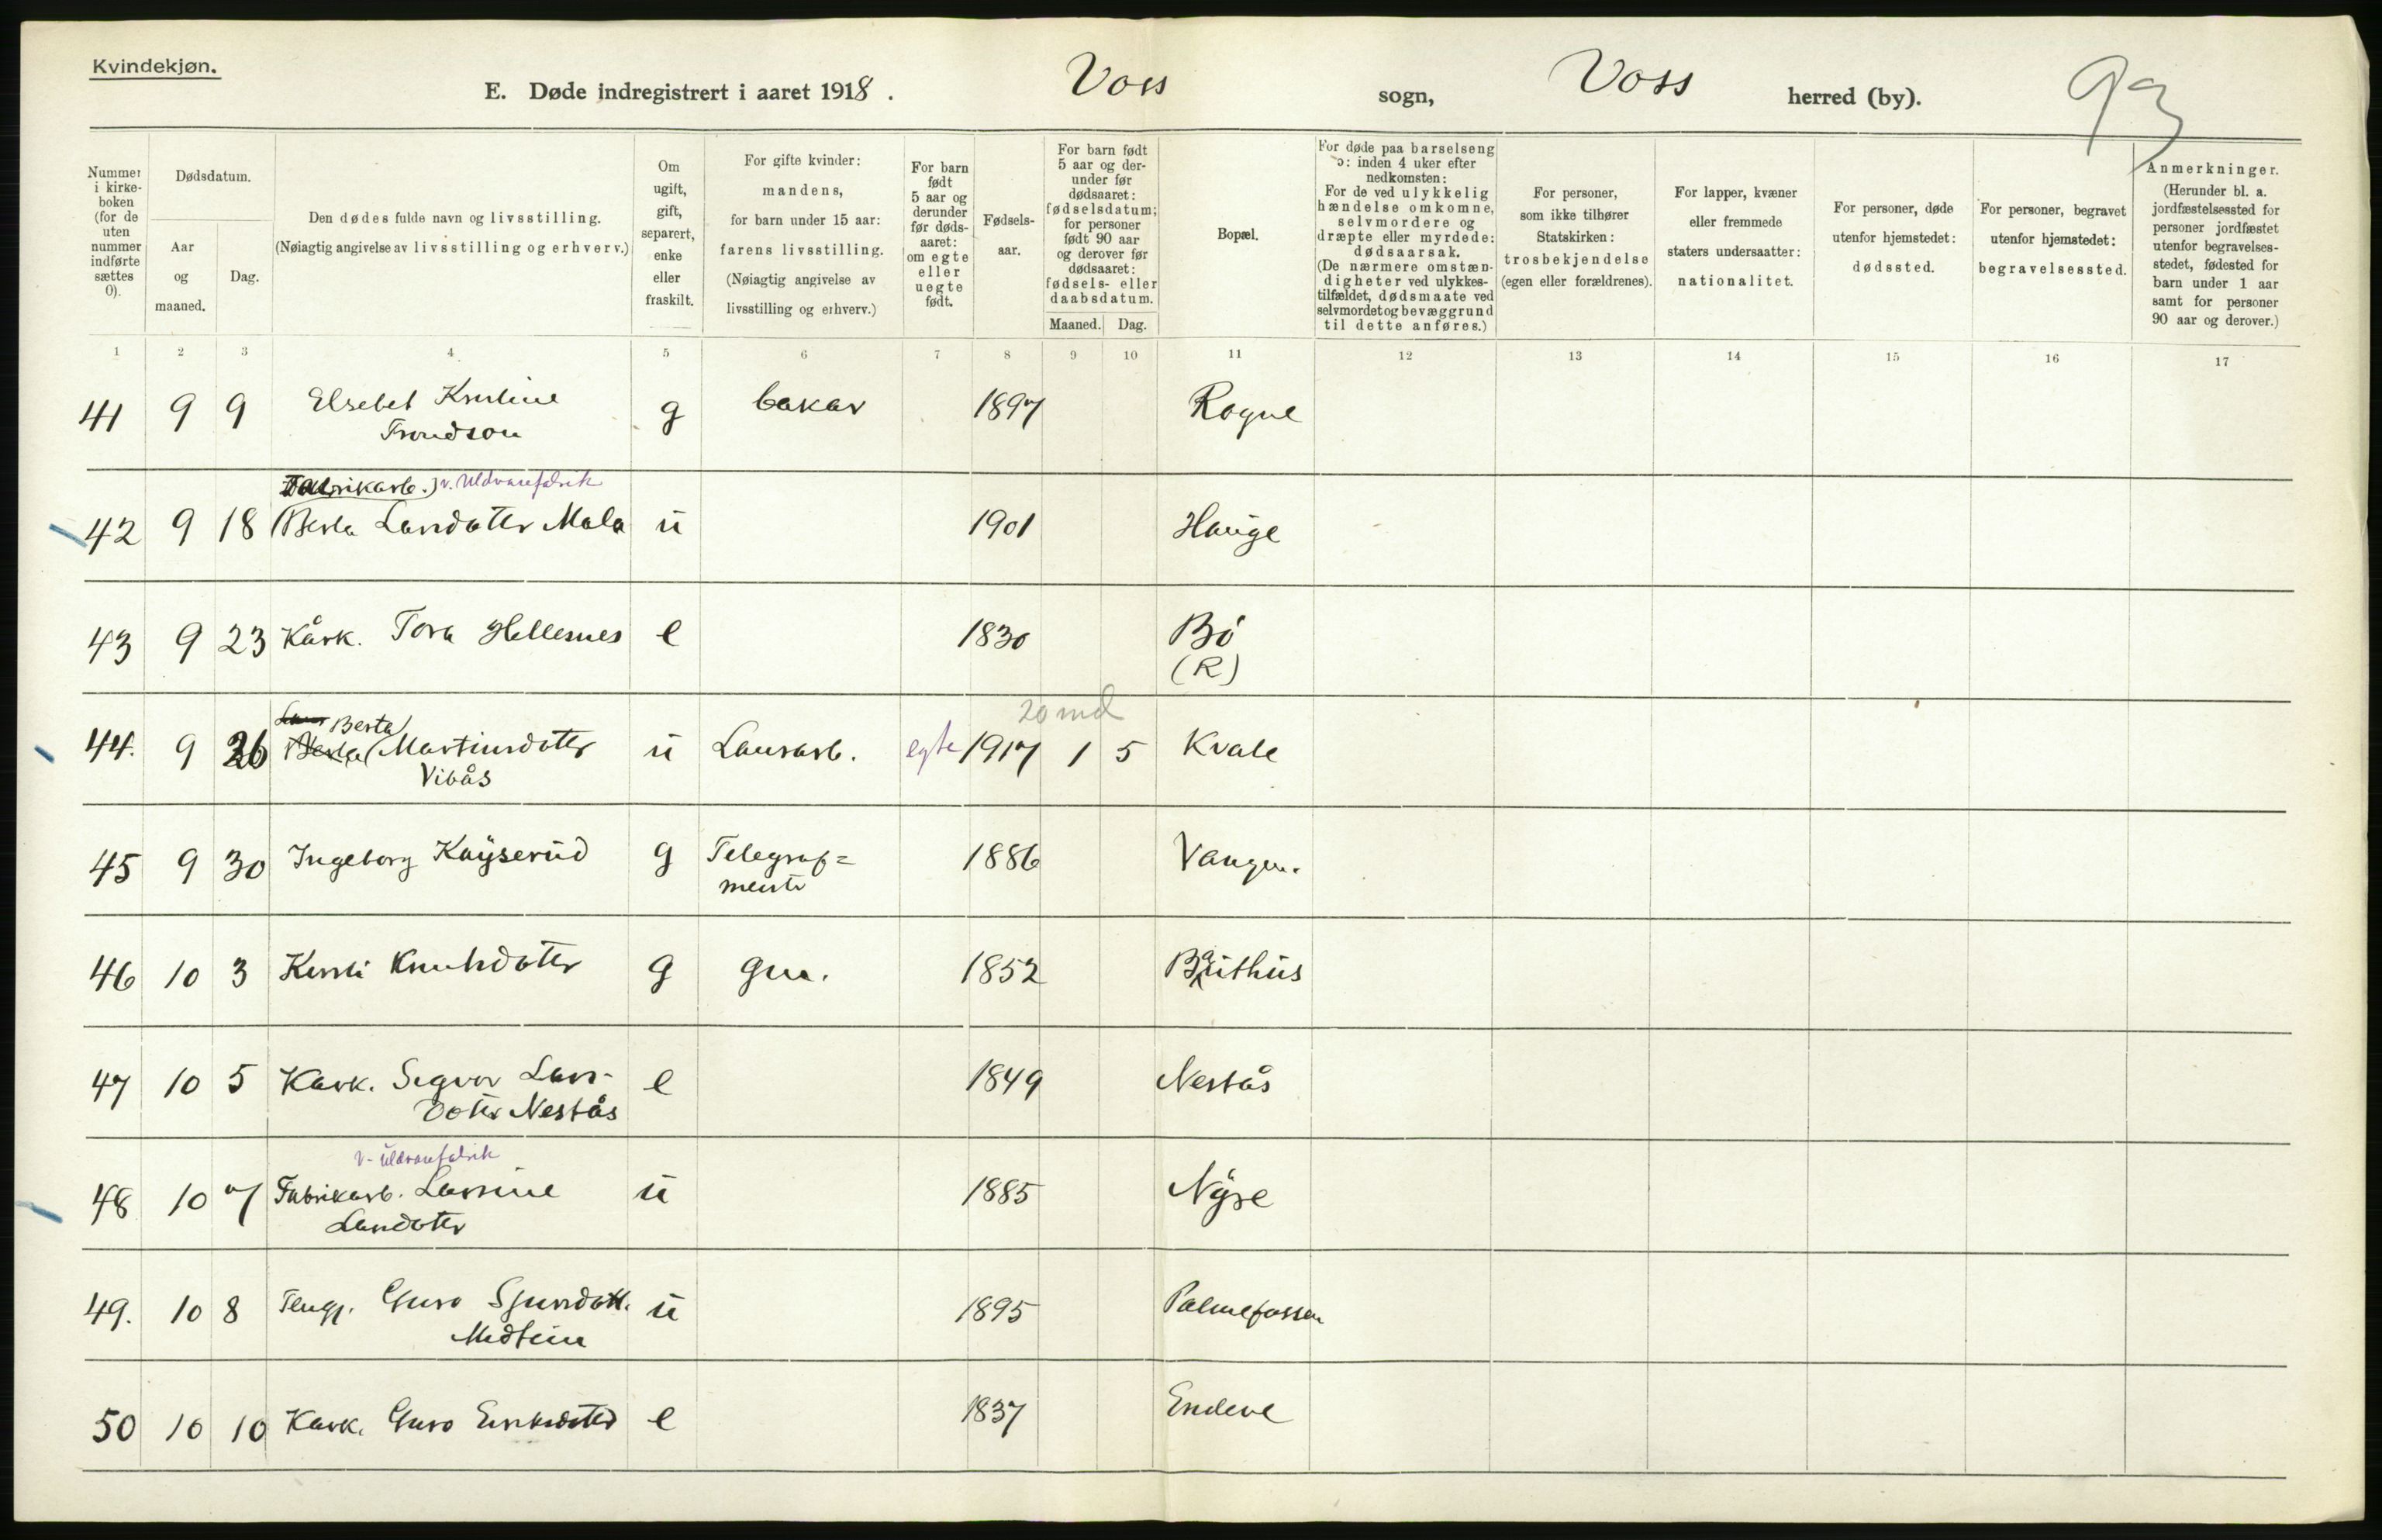 Kvindekjøn.
E. Døde indregistrert i aaret 1918. Voss sogn, Voss herred (by). 93
Nummer i kirkeboken (for de uten nummer indførte sættes 0).
Dødsdatum.
Aar og maaned.
Dag.
Den dødes fulde navn og livsstilling.
(Nøiagtig angivelse av livsstilling og erhverv.)
Om ugift, gift, separert, enke eller fraskilt.
For gifte kvinder: mandens, for barn under 15 aar: farens livsstilling. (Nøiagtig angivelse av livsstilling og erhverv.)
For barn født 5 aar og derunder før dødsaaret: om egte eller uegte født.
Fødselsaar.
For barn født 5 aar og derunder før dødsaaret: fødselsdatum; for personer født 90 aar og derover før dødsaaret: fødsels- eller daabsdatum.
Maaned. Dag.
Bopæl.
For døde paa barselseng ɔ: inden 4 uker efter nedkomsten: For de ved ulykkelig hændelse omkomne, selvmordere og dræpte eller myrdede: dødsaarsak. (De nærmere omstændigheter ved ulykkestilfældet, dødsmaate ved selvmordet og bevæggrund til dette anføres.)
For personer, som ikke tilhører Statskirken: trosbekjendelse (egen eller forældrenes).
For lapper, kvæner eller fremmede staters undersaatter: nationalitet.
For personer, døde utenfor hjemstedet: dødssted.
For personer, begravet utenfor hjemstedet: begravelsessted.
Anmerkninger. (Herunder bl. a. jordfæstelsessted for personer jordfæstet utenfor begravelsesstedet, fødested for barn under 1 aar samt for personer 90 aar og derover.)
1 2 3 4 5 6 7 8 9 10 11 12 13 14 15 16 17
41 9 9 Elsebet Kristine g bakar 1897 Rogne
Trondson
Fabrikarb. v. Uldvarefabrik
42 9 18 Berta Larsdotter Mala ú 1901 Hauge
43 9 23 Kårk. Tora Hellesnes e 1830 Bø
(R)
Berta 20 md
44. 9 26 Berta Martinsdotter ú Lausarb. egte 1917 1 5 Kvale
Vibås
45 9 30 Ingeborg Kaÿserud g Telegraf= 1886 Vangen.
meister
46 10 3 Kersti Knutsdotter g gm. 1852 Bauthus
47 10 5 Kark. Sigvor Lars- e 1849 Nestås
dotter Nestås
v. Uldvarefabrik
48 10 7 Fabrikarb. Larsine ú 1885 Nÿre
Larsdoter
49. 10 8 Guro Sjursdott. ú 1895 Palmefossen
50 10 10 Kark. Guro Eiriksdotter e 1837 Endeve